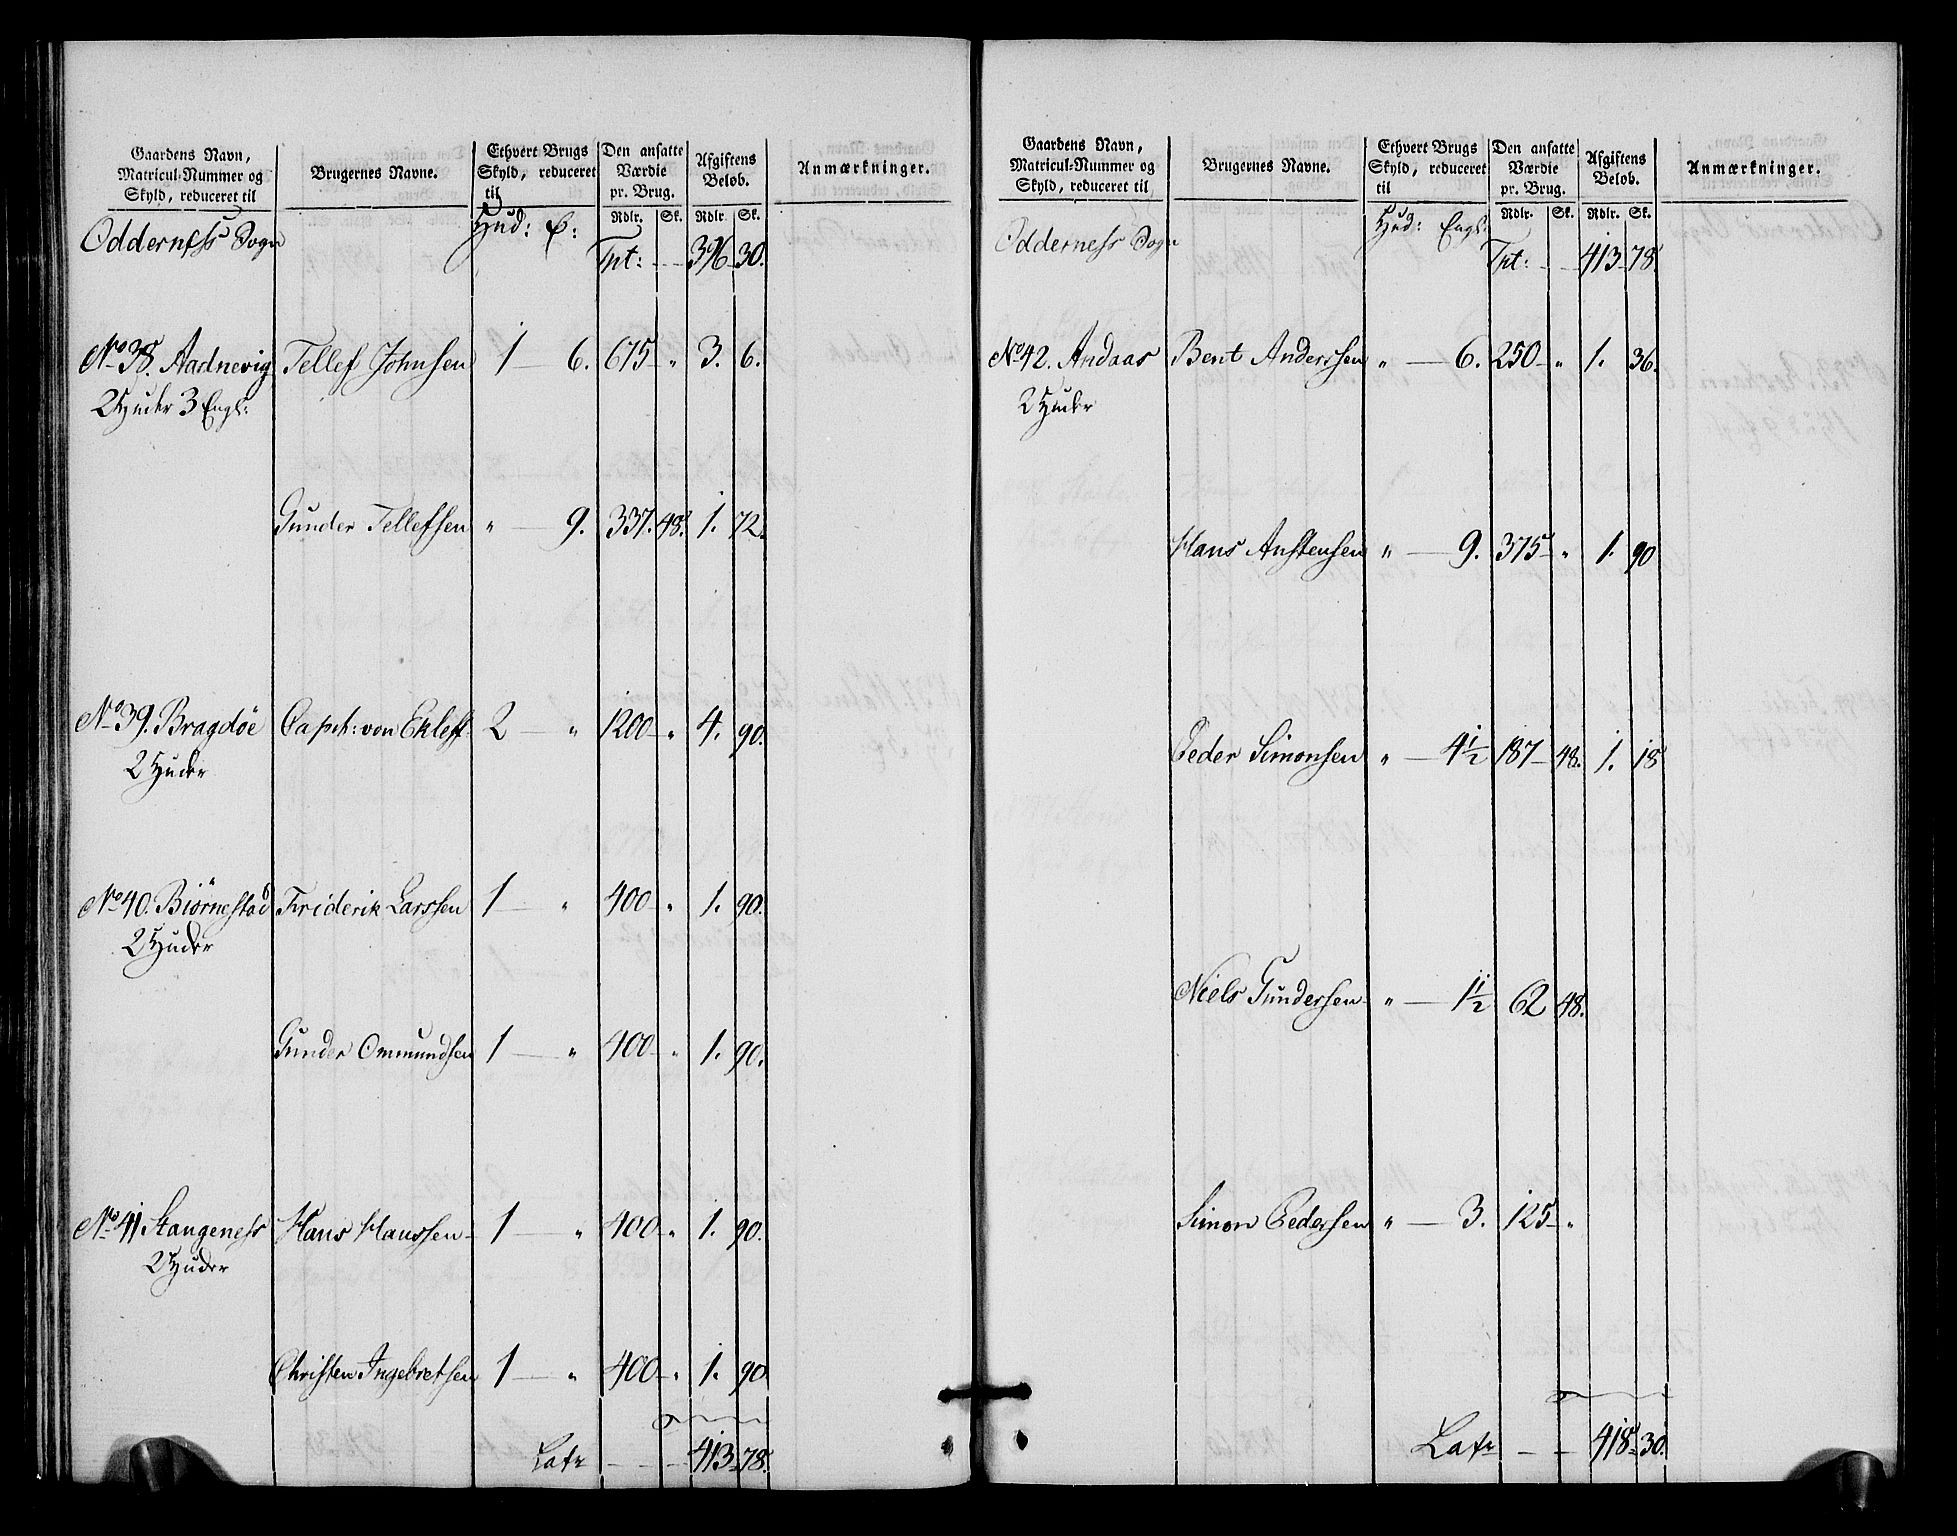 Gaardens Navn, Matricul-Nummer og Skyld, reduceret til | Brugernes Navne. | Ethvert Brugs Skyld, reduceret til | Den ansatte Værdie pr. Brug. | Afgiftens Beløb. | Anmærkninger.
Rdlr. Sk. Rdlr. Sk.
Odderness Sogn Hud: E:
Tpt: - - 396 30.
No 38. Aadnevig Tellef Johnsen 1 — 6. 675 " 3. 6.
2 Huder 3 Engl:
Gunder Tellefsen " — 9. 337. 48. 1. 72.
No 39. Bragdöe Capit: von Ekleff 2 — " 1200 " 4. 90.
2 Huder
No 40. Biörnestad Friderik Larssen 1 — " 400 " 1. 90.
2 Huder
Gunder Ommundsen 1 — " 400 " 1. 90.
No 41 Stangeness Hans Hanssen 1 — " 400 " 1. 90.
2 Huder
Christen Ingebretsen 1 — " 400 " 1. 90
Latr - - - 413 78.
Gaardens Navn, Matricul-Nummer og Skyld, reduceret til | Brugernes Navne. | Ethvert Brugs Skyld, reduceret til | Den ansatte Værdie pr. Brug. | Afgiftens Beløb. | Anmærkninger.
Rdlr. Sk. Rdlr. Sk.
Odderness Sogn Hud: Engl:
Tpt: - - 413 78.
No 42. Andaas Bent Anderssen " — 6. 250 " 1. 36.
2 Huder
Hans Anstensen " — 9. 375 " 1. 90
Peder Simonsen " — 4½ 187 48. 1. 18
Niels Gundersen " — 1½ 62 48.
Simon Pedersen " — 3. 125 "
Latr - - 418 30.